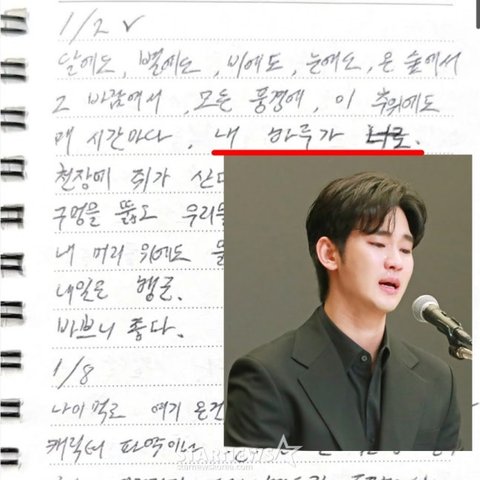 1/2 v
달에도, 별에도, 비에도, 눈에도, 온 숲에서
그 바람에서, 모든 풍경에, 이 추위에도
매 시간마다, 내 하루가 너로.
천장에 쥐가 산다
구멍을 뚫고 우리들
내 머리 위에도
내일은 행군.
바쁘니 좋다.
1/8
나이 먹고 여기 온건
캐릭터 파악이니
STARNEWS
starnewskorea.com